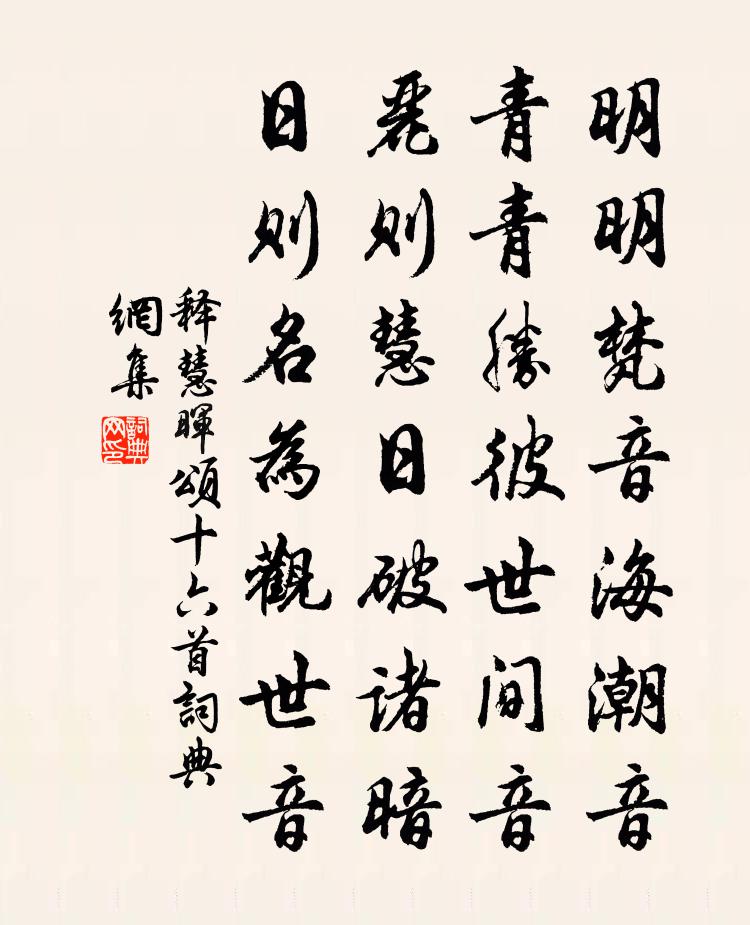 明明梵音海潮音
青青勝彼世间音
麗则慧日破诸暗
日则名為觀世音
释慧暉頌十六首詞典
網集
詞典
网印